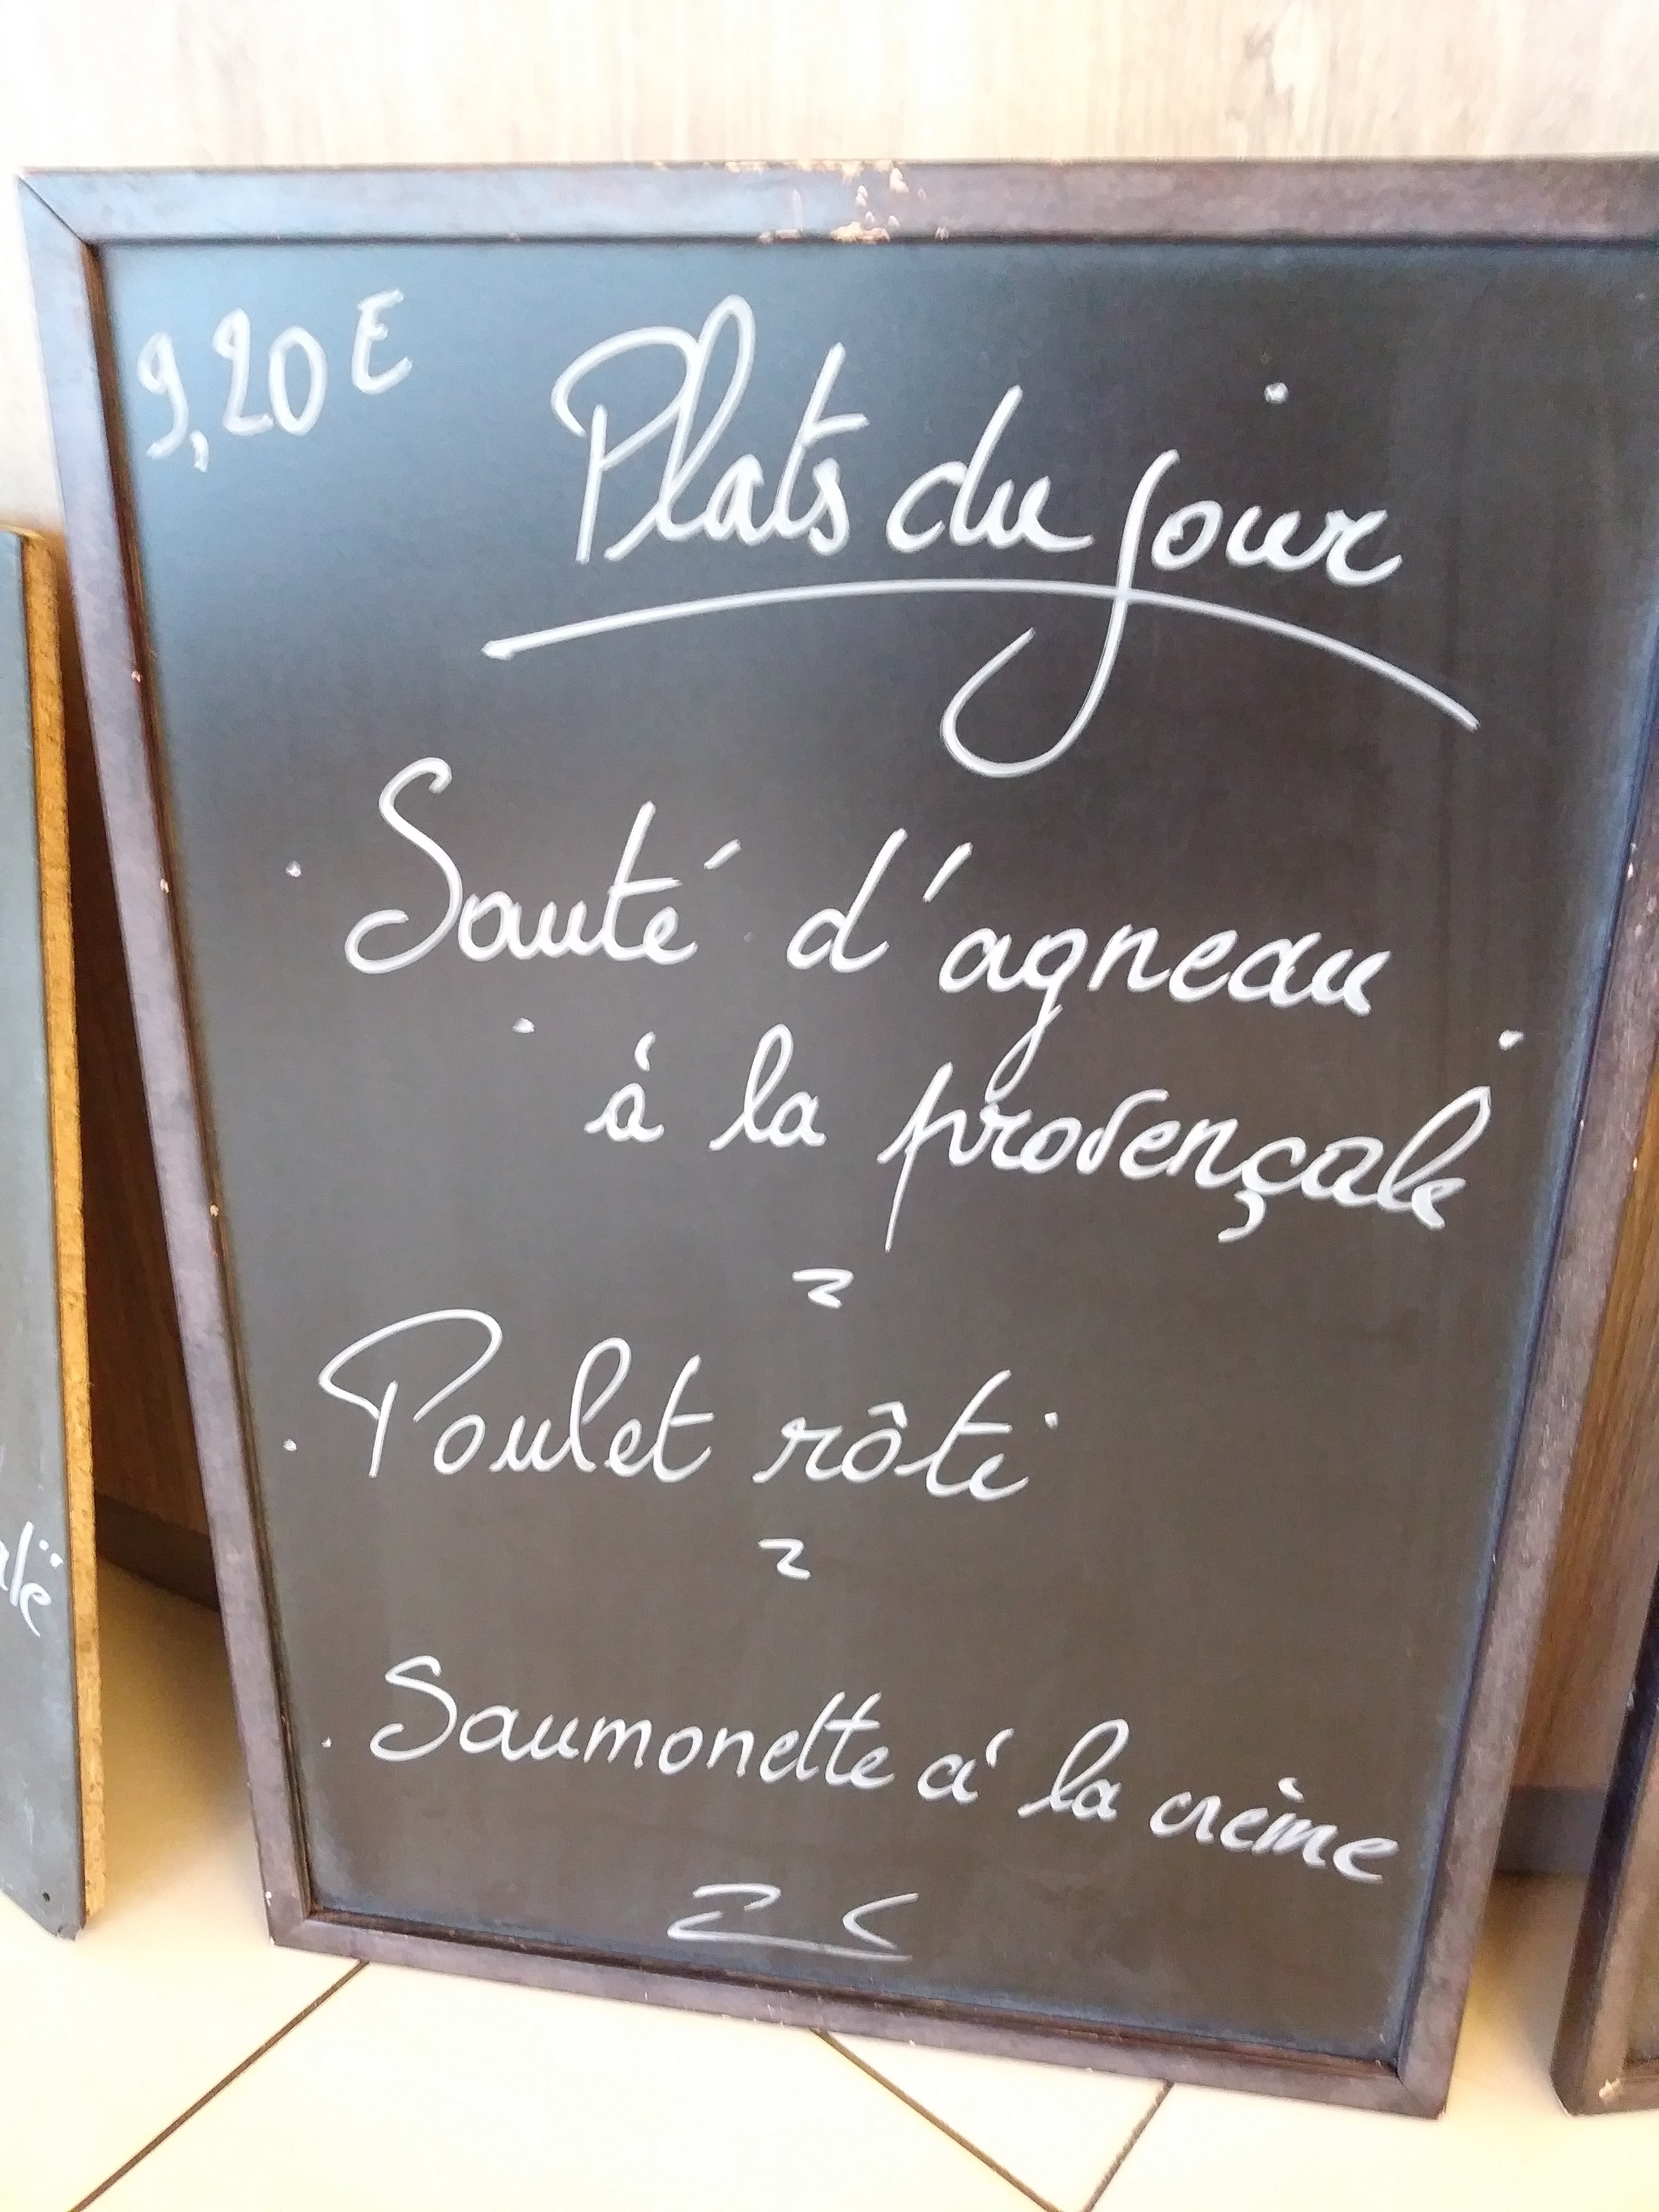 9,20 E
Plats du jour
. Sauté d'agneau
à la provençale
. Poulet rôti
. Saumonette à la crème